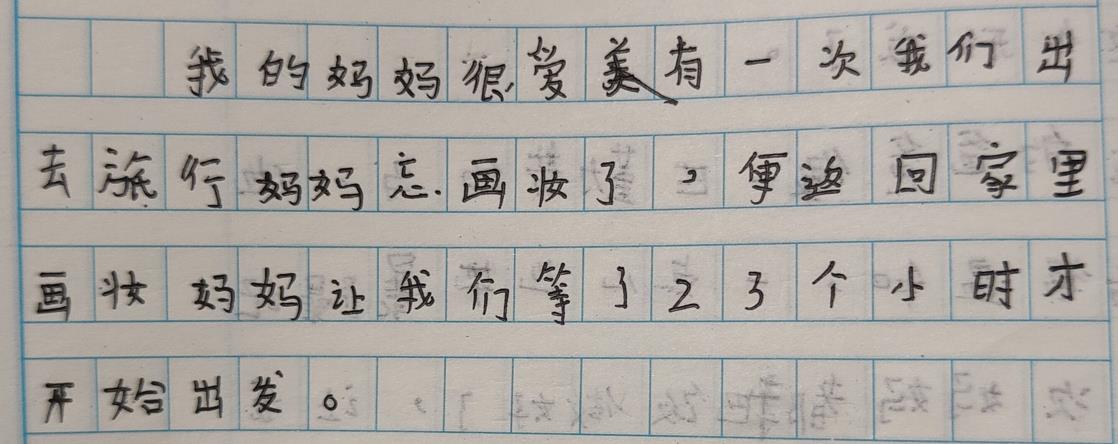 我的妈妈很爱美有一次我们出
去旅行妈妈忘画妆了，便返回家里
画妆妈妈让我们等了23个小时才
开始出发。